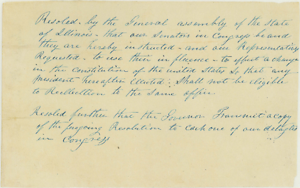 Resolved, by the General assembly of the State
of Illinois - that our Senators in Congress be and
they are hereby instructed - and our Representatives
Requested - to use their influence - to effect a change
in the constitution of the united States So that any
President hereafter Elected - Shall not be eligible
to Reelection to the same office.
Resolved further that the Governor Transmit a copy
of the foregoing Resolution to each one of our delegates
in Congress